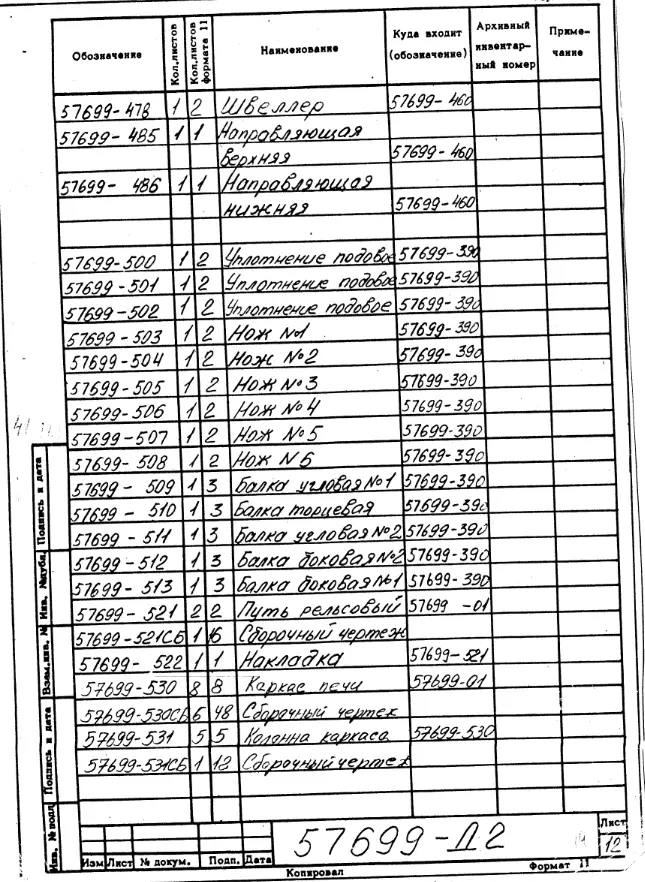 Обозначение Кол.листов Кол.листов формата 11 Наименование Куда входит (обозначение) Архивный инвентарный номер Примечание
57699-478 1 2 Швеллер 57699-460
57699-485 1 1 Направляющая
верхняя 57699-460
57699- 486 1 1 Направляющая
нижняя 57699-460
57699-500 1 2 Уплотнение подовое 57699-390
57699-501 1 2 Уплотнение подовое 57699-390
57699-502 1 2 Уплотнение подовое 57699-390
57699-503 1 2 Нож №1 57699-390
57699-504 1 2 Нож №2 57699-390
57699-505 1 2 Нож №3 57699-390
57699-506 1 2 Нож №4 57699-390
57699-507 1 2 Нож №5 57699-390
57699-508 1 2 Нож N 6 57699-390
57699 - 509 1 3 Балка угловая №1 57699-390
57699 - 510 1 3 Балка торцевая 57699-390
57699 - 511 1 3 Балка угловая №2 57699-390
57699-512 1 3 Балка боковая №2 57699-390
57699 - 513 1 3 Балка боковая №1 57699-390
57699-521 2 2 Путь рельсовый 57699 -01
57699-521СБ 1 16 Сборочный чертеж
57699- 522 1 1 Накладка 57699-521
57699-530 8 8 Каркас печи 57699-01
57699-530СБ 6 48 Сборочный чертеж
57699-531 5 5 Колонна каркаса 57699-530
57699-531СБ 1 12 Сборочный чертеж
Подпись и дата
Инв. №дубл.
Взам.инв. №
Подпись и дата
Инв. № подл
Изм Лист № докум. Подп. Дата
57699-Д2
Лист
12
Копировал Формат 11